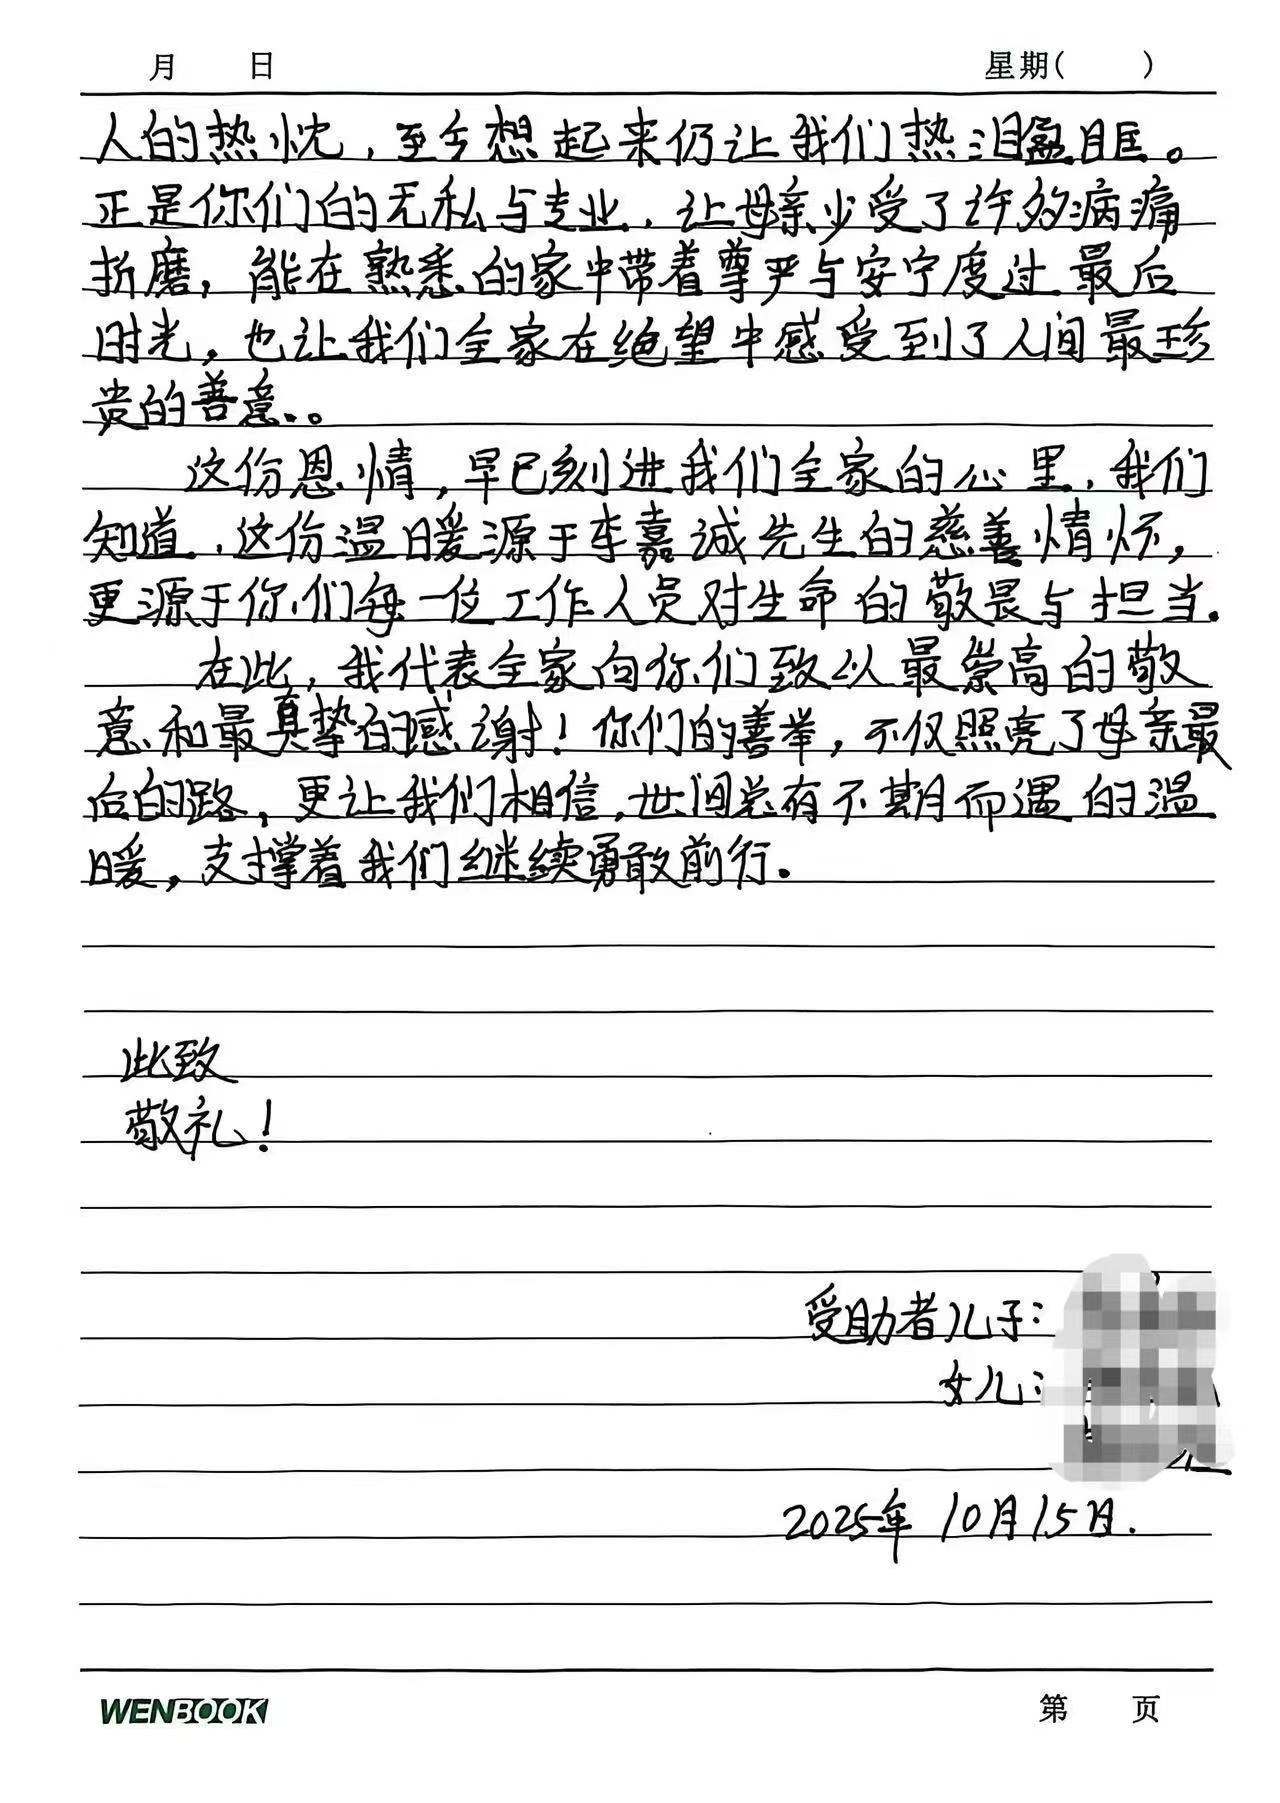 月 日 星期( )
人的热忱，至今想起来仍让我们热泪盈眶。
正是你们的无私与专业，让母亲少受了许多病痛
折磨，能在熟悉的家中带着尊严与安宁度过最后
时光，也让我们全家在绝望中感受到了人间最珍
贵的善意.。
这份恩情，早已刻进我们全家的心里，我们
知道，这份温暖源于李嘉诚先生的慈善情怀，
更源于你们每一位工作人员对生命的敬畏与担当.
在此，我代表全家向你们致以最崇高的敬
意和最真挚的感谢！你们的善举，不仅照亮了母亲最
后的路，更让我们相信，世间总有不期而遇的温
暖，支撑着我们继续勇敢前行。
此致
敬礼！
受助者儿子：
女儿：
2025年10月15日.
WENBOOK 第 页